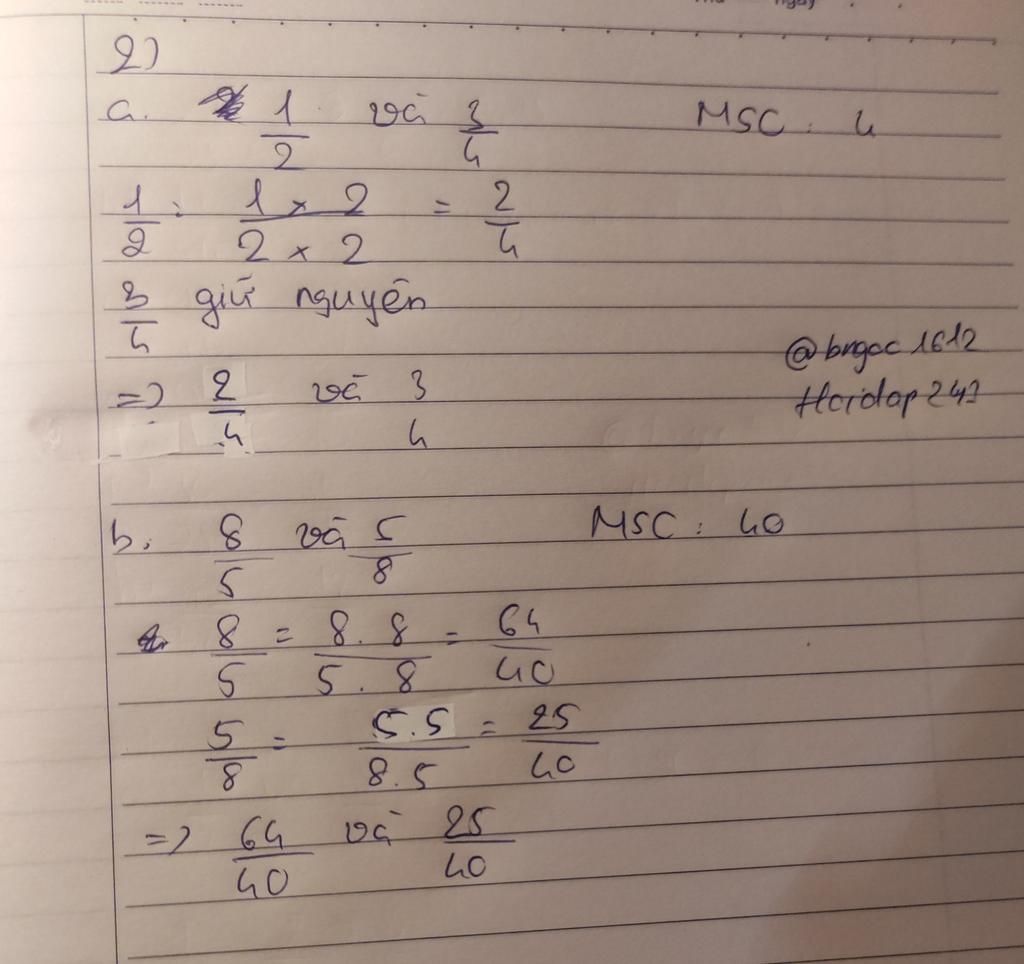 2)
a. 1/2 và 3/4 MSC : 4
1/2 = 1 x 2 / 2 x 2 = 2/4
3/4 giữ nguyên
@bngoc1612
=) 2/4 và 3 4
#Hoidap247
b. 8/5 và 5/8 MSC : 40
8/5 = 8 . 8 / 5 . 8 = 64/40
5/8 = 5.5 / 8.5 = 25/40
=) 64/40 và 25/40